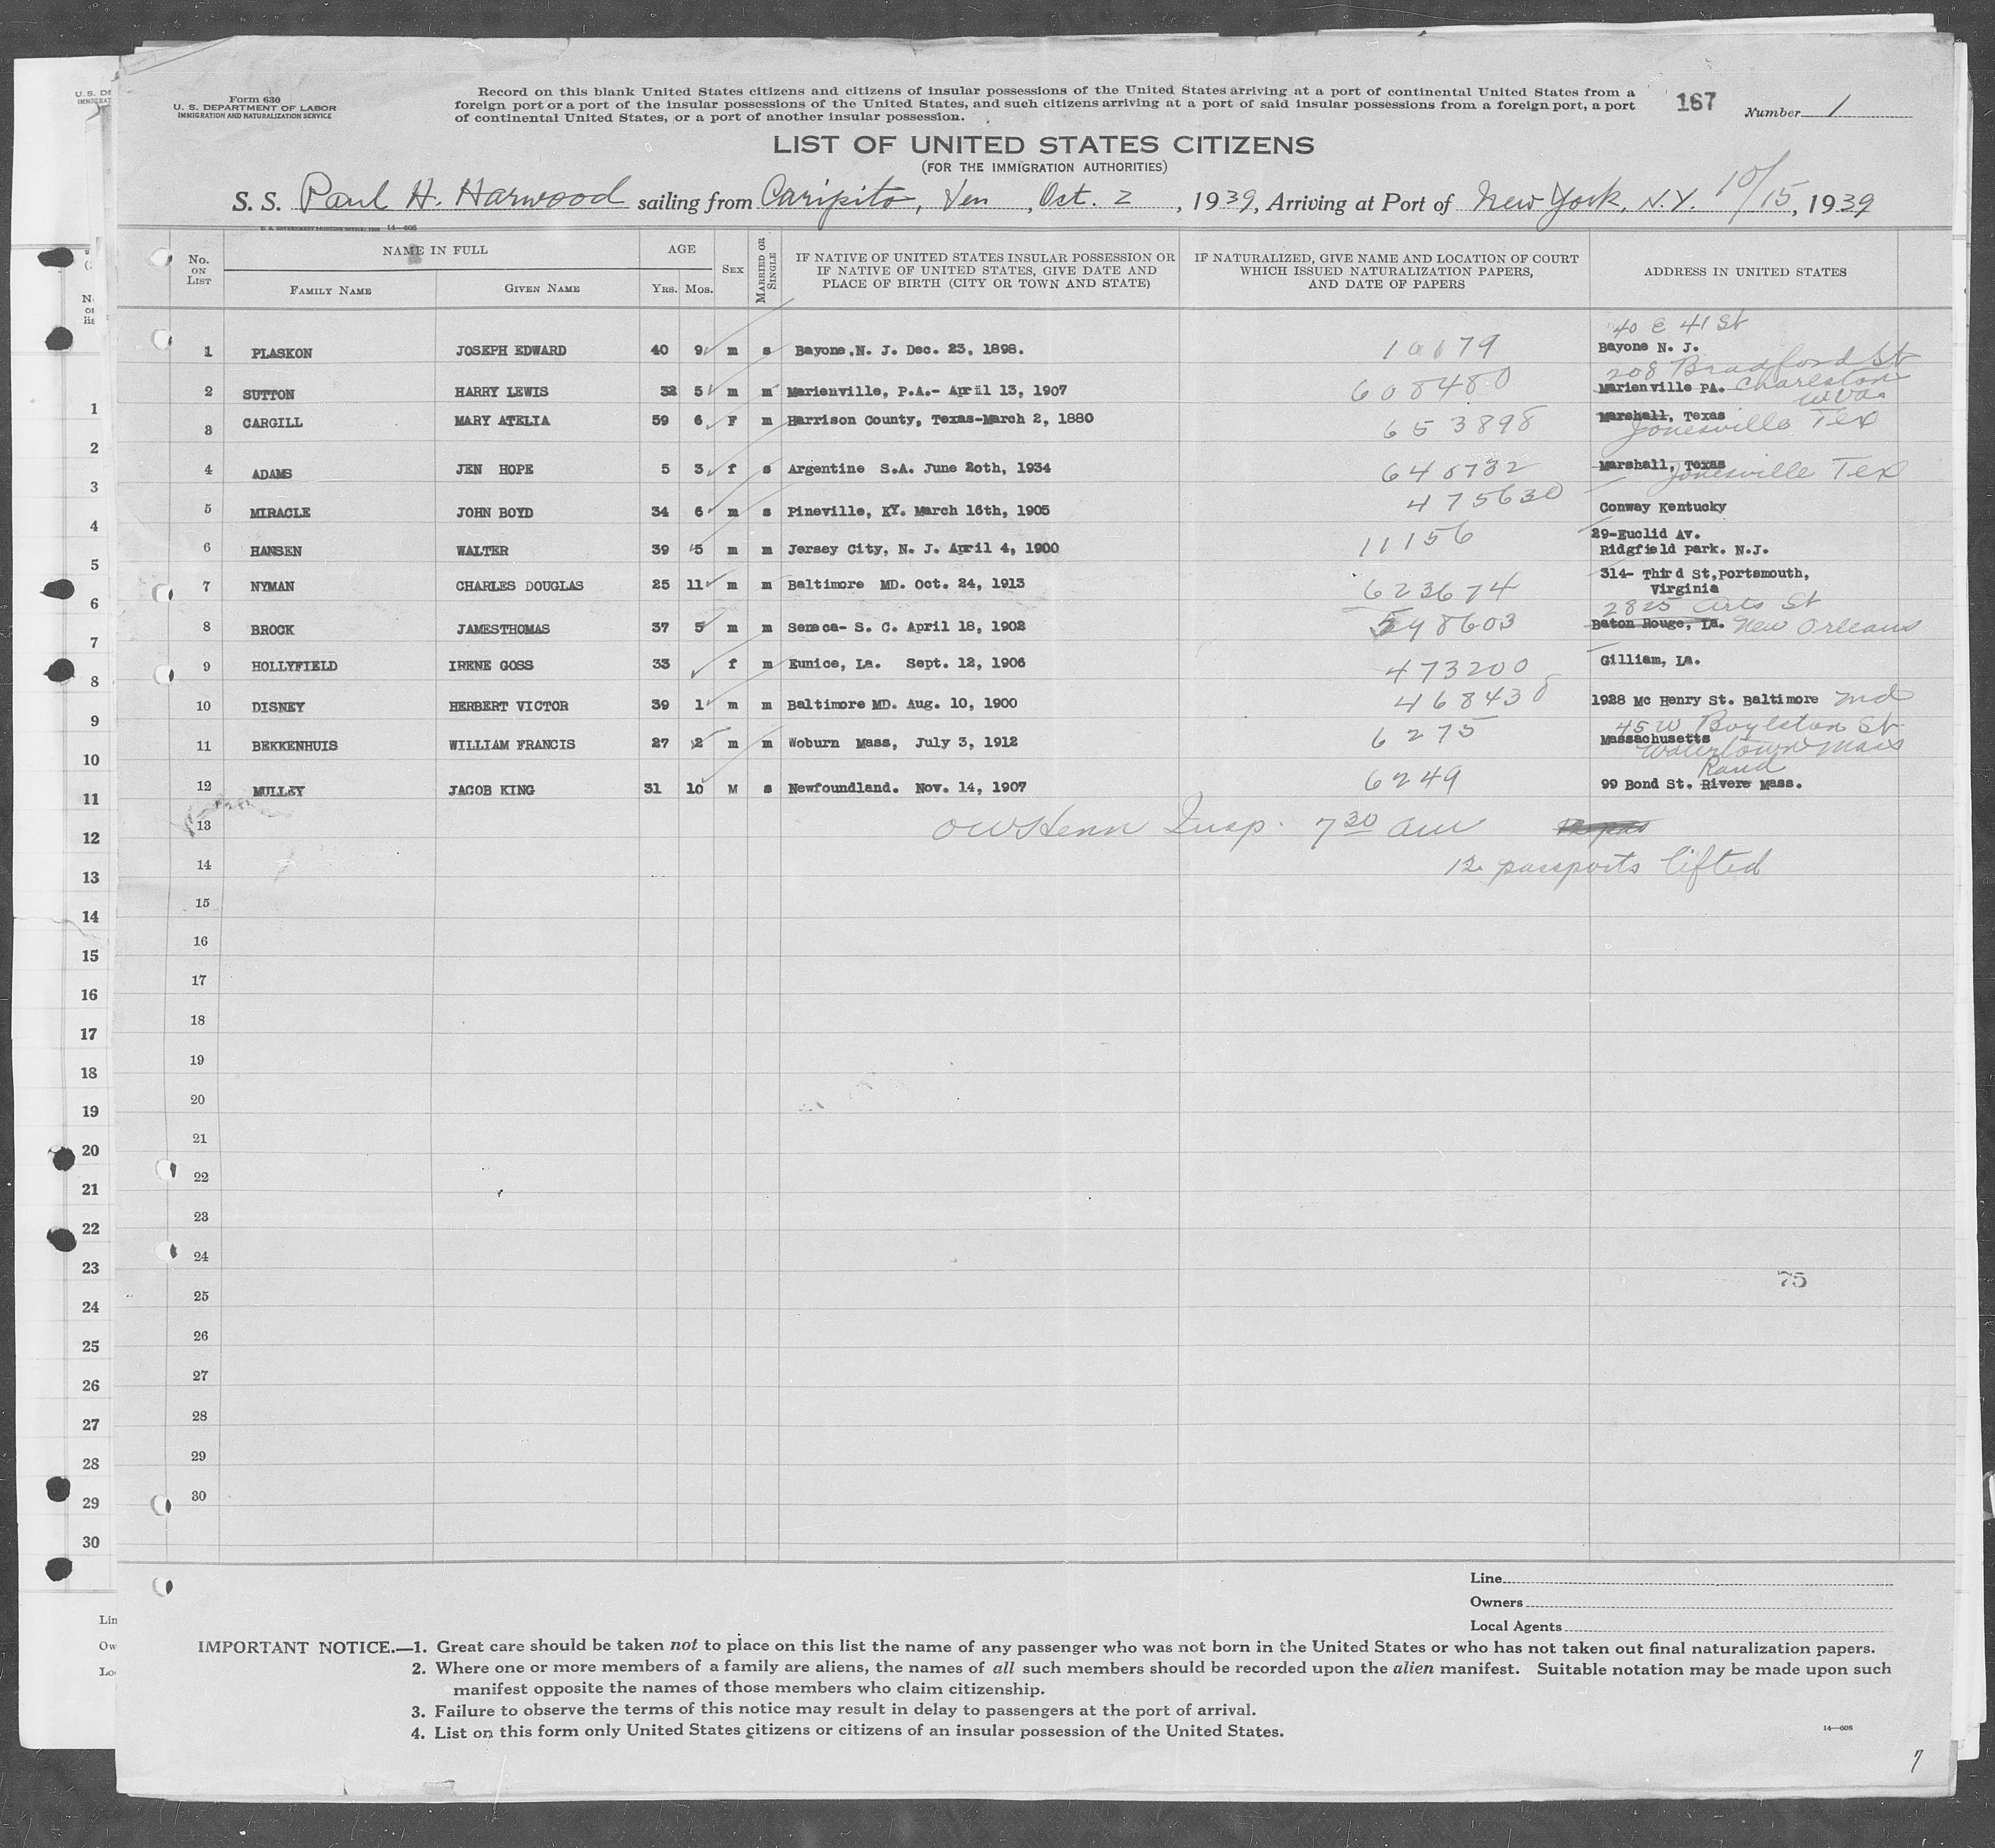 Form 630
U. S. DEPARTMENT OF LABOR
IMMIGRATION AND NATURALIZATION SERVICE
Record on this blank United States citizens and citizens of insular possessions of the United States arriving at a port of continental United States from a
foreign port or a port of the insular possessions of the United States, and such citizens arriving at a port of said insular possessions from a foreign port, a port
of continental United States, or a port of another insular possession.
167
Number 1
LIST OF UNITED STATES CITIZENS
(FOR THE IMMIGRATION AUTHORITIES)
S. S. Paul H. Harwood sailing from Caripito, Ven, Oct. 2, 1939, Arriving at Port of New York, N.Y. 10/15, 1939
No. ON LIST
NAME IN FULL
FAMILY NAME
GIVEN NAME
AGE
YRS. MOS.
SEX
MARRIED OR SINGLE
IF NATIVE OF UNITED STATES INSULAR POSSESSION OR
IF NATIVE OF UNITED STATES, GIVE DATE AND
PLACE OF BIRTH (CITY OR TOWN AND STATE)
IF NATURALIZED, GIVE NAME AND LOCATION OF COURT
WHICH ISSUED NATURALIZATION PAPERS,
AND DATE OF PAPERS
ADDRESS IN UNITED STATES
40 E 41 St
1 PLASKON JOSEPH EDWARD 40 9 m s Bayone, N. J. Dec. 23, 1898. Bayone N. J.
208 Bradford St
2 SUTTON HARRY LEWIS 32 5 m m Marienville, P.A.- April 13, 1907 608480 Marienville PA. Charleston
W Va.
3 CARGILL MARY ATELIA 59 6 F m Harrison County, Texas-March 2, 1880 653898 Marshall, Texas
Jonesville Tex
4 ADAMS JEN HOPE 5 3 f s Argentine S.A. June 20th, 1934 640732 Marshall, Texas
Jonesville Tex
5 MIRACLE JOHN BOYD 34 6 m s Pineville, KY. March 16th, 1905 475630 Conway Kentucky
6 HANSEN WALTER 39 5 m m Jersey City, N. J. April 4, 1900 11156 29-Euclid Av.
Ridgfield Park. N.J.
7 NYMAN CHARLES DOUGLAS 25 11 m m Baltimore MD. Oct. 24, 1913 623674 314- Third St, Portsmouth,
Virginia
2825 Arts St
8 BROCK JAMESTHOMAS 37 5 m m Seneca- S. C. April 18, 1902 548603 Baton Rouge, La. New Orleans
9 HOLLYFIELD IRENE GOSS 33 f m Eunice, La. Sept. 12, 1906 473200 Gilliam, La.
10 DISNEY HERBERT VICTOR 39 1 m m Baltimore MD. Aug. 10, 1900 468438 1928 Mc Henry St. Baltimore Md
45 W Boylston St
11 BEKKENHUIS WILLIAM FRANCIS 27 2 m m Woburn Mass, July 3, 1912 6275 Massachusetts
Watertown Mass
Rand
12 MULLEY JACOB KING 31 10 M s Newfoundland. Nov. 14, 1907 6249 99 Bond St. Rivere Mass.
13 Insp. 7 30 am
14 12 passports lifted
15
16
17
18
19
20
21
22
23
24
75
25
26
27
28
29
30
Line
Owners
Local Agents
IMPORTANT NOTICE.—1. Great care should be taken not to place on this list the name of any passenger who was not born in the United States or who has not taken out final naturalization papers.
2. Where one or more members of a family are aliens, the names of all such members should be recorded upon the alien manifest. Suitable notation may be made upon such
manifest opposite the names of those members who claim citizenship.
3. Failure to observe the terms of this notice may result in delay to passengers at the port of arrival.
4. List on this form only United States citizens or citizens of an insular possession of the United States.
14—608
7